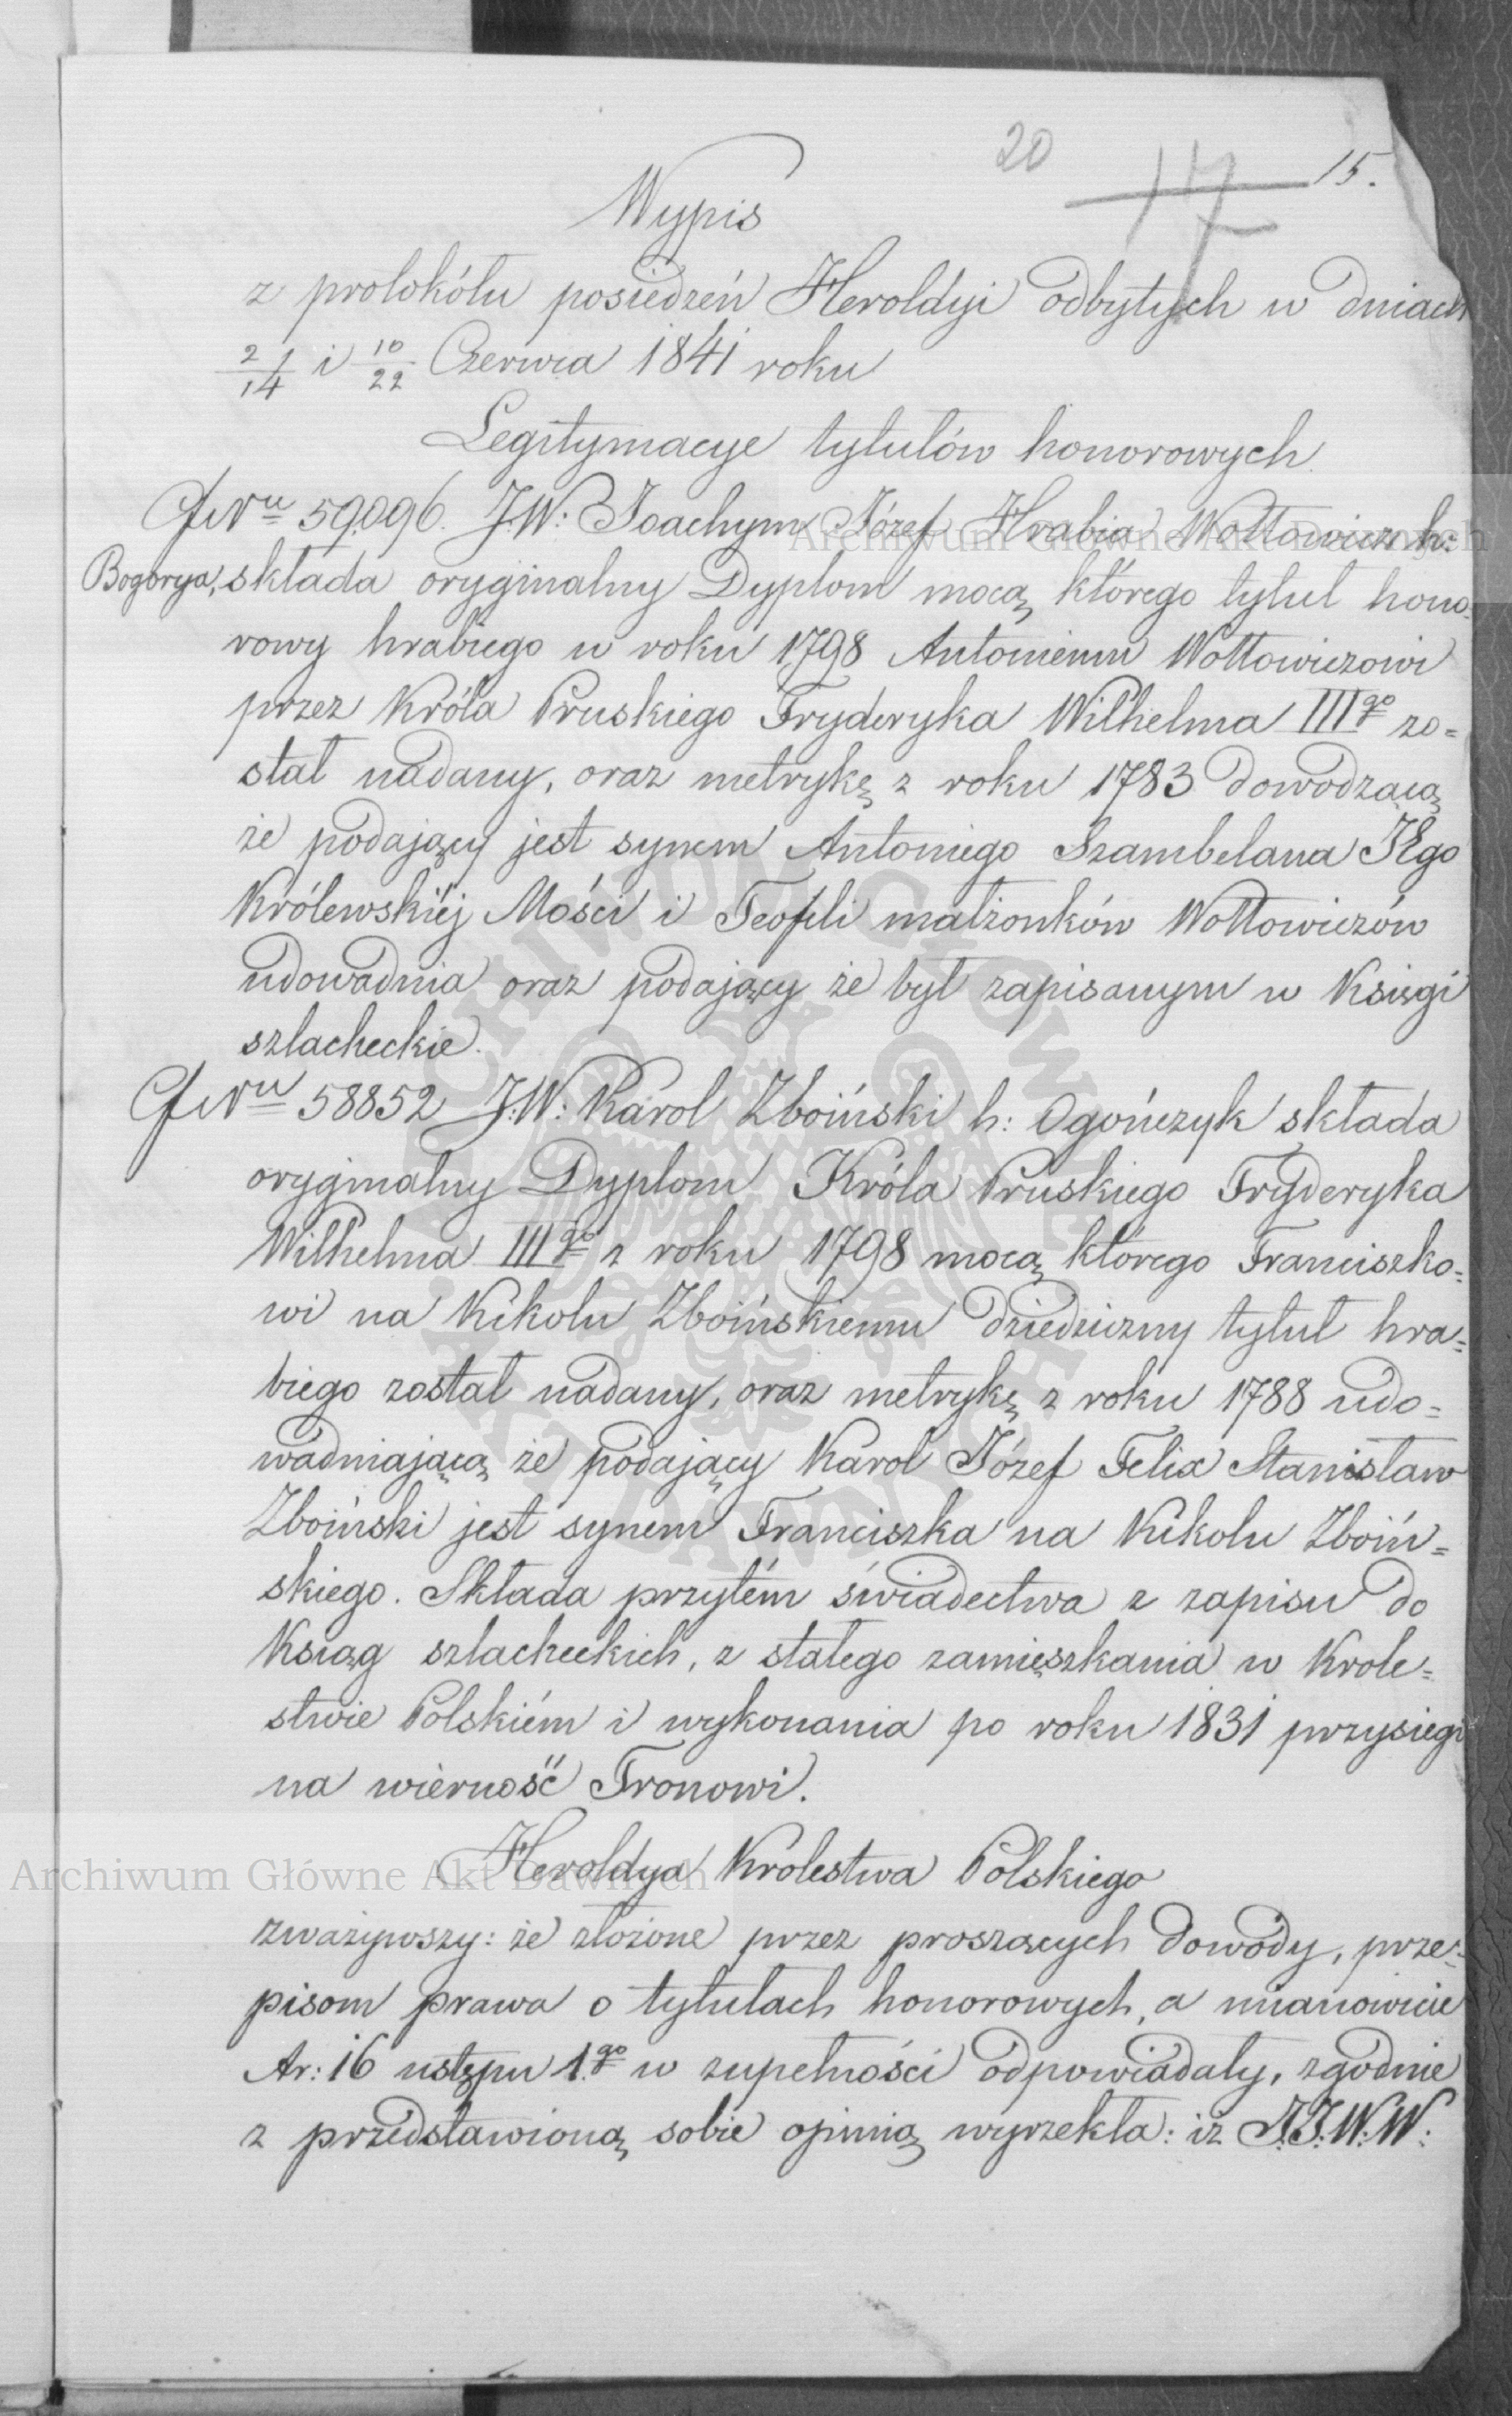 20
17
15.
Wypis
z protokółu posiedzeń Heroldyi odbytych w dniach
2/14 i 10/22 Czerwca 1841 roku
Legitymacye tytułów honorowych.
Nru 59096. J.W: Joachym Józef Hrabia Wołłowicz h:
Bogorya, składa oryginalny Dyplom mocą którego tytuł hono-
rowy hrabiego w roku 1798 Antoniemu Wołłowiczowi
przez Króla Pruskiego Fryderyka Wilhelma IIIgo zo=
stał nadany, oraz metrykę z roku 1783 dowodzącą
że podający jest synem Antoniego Szambelana JEgo
Królewskiéj Mości i Teofili małżonków Wołłowiczów
udowadnia oraz podający że był zapisanym w Księgi
szlacheckie.
Nru 58852 J.W: Karol Zboiński h: Ogończyk składa
oryginalny Dyplom Króla Pruskiego Fryderyka
Wilhelma IIIgo z roku 1798 mocą którego Franciszko=
wi na Kikolu Zboińskiemu dziedziczny tytuł hra=
biego został nadany, oraz metrykę z roku 1788 udo=
wadniającą że podający Karol Józef Felix Stanisław
Zboiński jest synem Franciszka na Kikolu Zboiń=
skiego. Składa przytém świadectwa z zapisu do
Ksiąg szlacheckich, z stałego zamieszkania w Krole=
stwie Polskiém i wykonania po roku 1831 przysiegi
na wierność Tronowi.
Heroldya Krolestwa Polskiego
zważywszy: że złożone przez proszących dowody, prze=
pisom prawa o tytułach honorowych, a mianowicie
Ar: 16 ustępu 1.go w zupełności odpowiadały, zgodnie
z przedstawioną sobie opinią wyrzekła: iż J.J.W.W:
Archiwum Główne Akt Dawnych
Archiwum Główne Akt Dawnych
ARCHIWUM GŁÓWNE AKT DAWNYCH